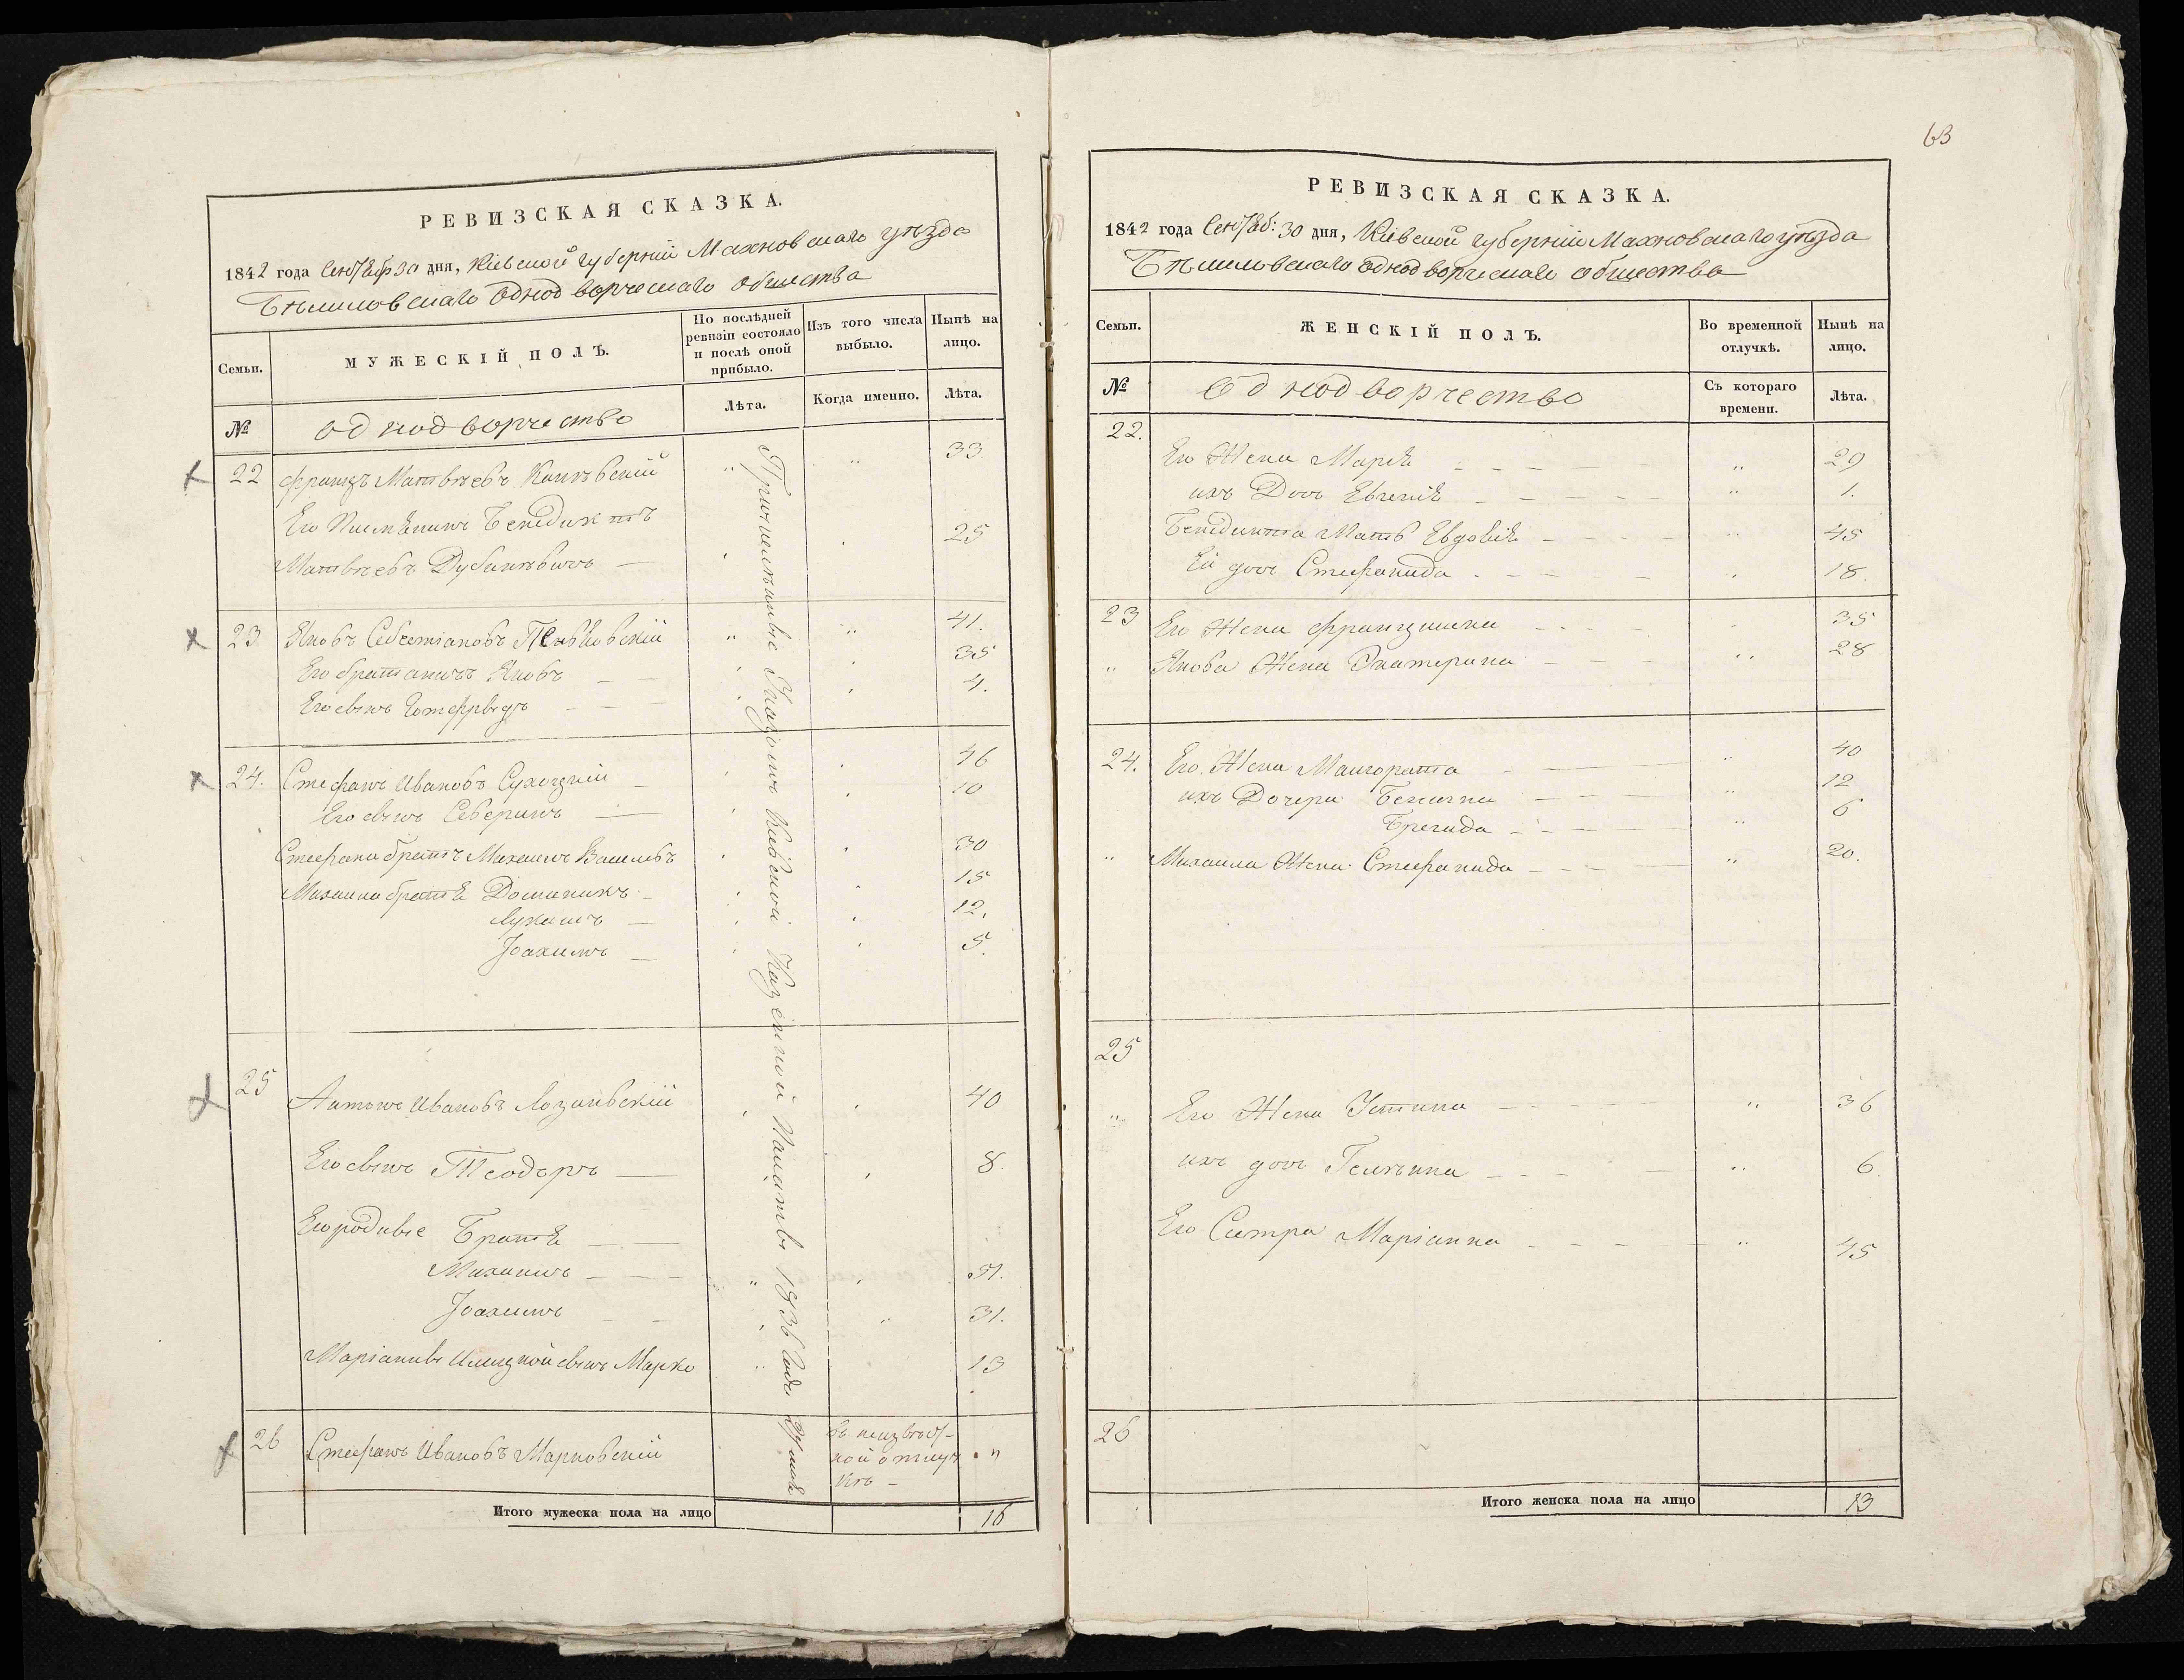 63
РЕВИЗСКАЯ СКАЗКА.
1842 года Сентяб 30 дня, Кіевской губерніи Махновскаго уѣзда
Бѣлиловскаго однодворческаго общества
Семьи.
МУЖЕСКІЙ ПОЛЪ.
По послѣдней ревизіи состояло и послѣ оной прибыло.
Изъ того числа выбыло.
Нынѣ на лицо.
№
однодворчество
Лѣта.
Когда именно.
Лѣта.
22 Францъ Матвѣевъ 33
Его Племянникъ Бенедиктъ 25
Матвѣевъ
23 Яковъ 41.
Его братаничъ Яковъ 35
Его сынъ 4.
24. Стефанъ Ивановъ Сухоцкій 46
Его сынъ Северинъ 10
Стефана братъ Михаилъ Васильевъ 30
Михаила братья Доминикъ 15
Лукашъ 12.
Іоахимъ 5.
25 Антонъ Ивановъ Лозинскій 40
Его сынъ Теодоръ 8.
Его родные Братья
Михаилъ 51.
Іоахимъ 31.
Маріанны сынъ Марко 13
26 Стефанъ Ивановъ Марковскій въ неизвѣст-
ной отлуч
кѣ - "
Причисленные Указомъ Кіевской Казенной Палаты 1836 года мая
Итого мужеска пола на лицо 16
РЕВИЗСКАЯ СКАЗКА.
1842 года Сентяб: 30 дня, Кіевской губерніи Махновскаго уѣзда
Бѣлиловскаго однодворческаго общества
Семьи.
ЖЕНСКІЙ ПОЛЪ.
Во временной отлучкѣ.
Нынѣ на лицо.
№
Однодворчество
Съ котораго времени.
Лѣта.
22.
Его Жена Марья 29
ихъ Дочь Евгенія 1.
Бенедикта Мать Евдокія 45
Ей дочь Стефанида 18.
23 Его Жена Францишка 35
" Якова Жена Екатерина 28
24. Его Жена Малгората 40
ихъ Дочери 12
Бригида 6
" Михаила Жена Стефанида 20.
25
" Его Жена Устина 36
ихъ дочь 6.
Его Систра Маріанна 45
26
Итого женска пола на лицо 13